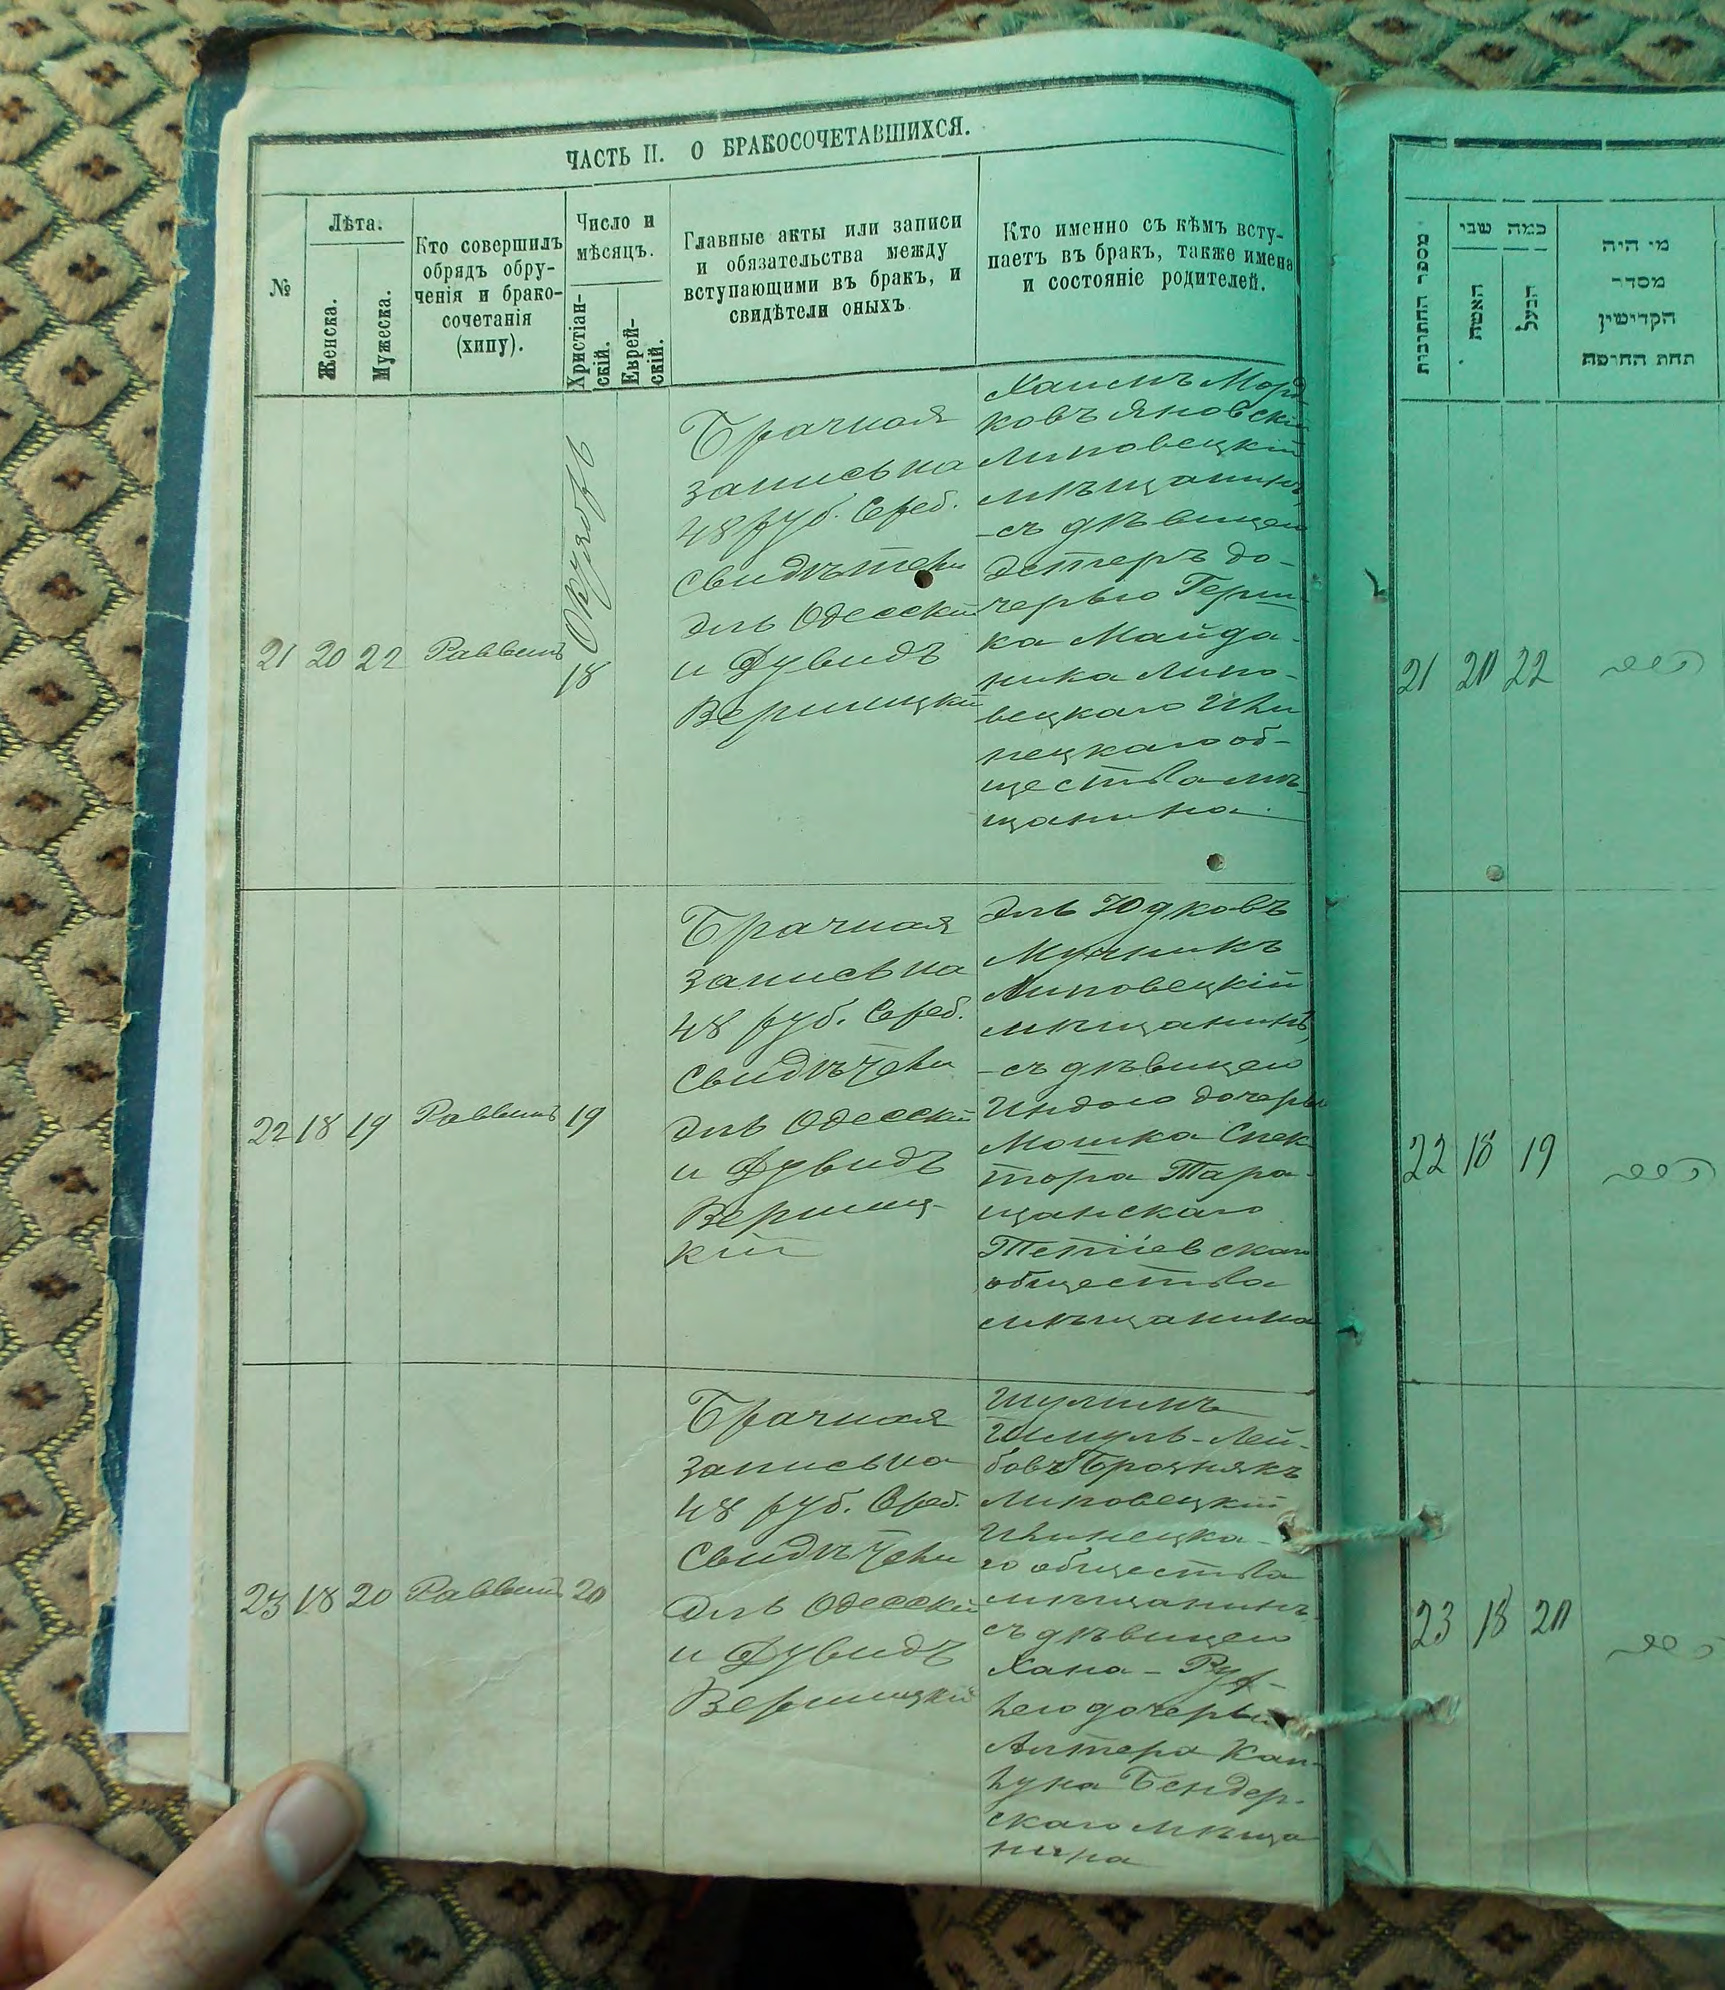 ЧАСТЬ II. О БРАКОСОЧЕТАВШИХСЯ.
№
Лѣта.
Женска.
Мужеска.
Кто совершилъ
обрядъ обру-
ченія и брако-
сочетанія
(хипу).
Число и
мѣсяцъ.
Христіан-
скій.
Еврей-
скій.
Главные акты или записи
и обязательства между
вступающими въ бракъ, и
свидѣтели оныхъ
Кто именно съ кѣмъ всту-
паетъ въ бракъ, также имена
и состояніе родителей.
21 20 22 Раввинъ 18
Брачная
запись на
48 руб. Сереб.
Свидѣтели
Эль Одесскій
и Дувидъ
Верницкій
Хаимъ Морд
ковъ Яновскій
Липовецкій
мѣщанинъ,
-съ дѣвицею
Эстеръ до-
черью Герш-
ка Майда-
ника Липо-
вецкаго Или
нецкаго об-
щества мѣ-
щанина.
22 18 19 Раввинъ 19
Брачная
запись на
48 руб. Сереб.
Свидѣтели
Эль Одесскій
и Дувидъ
Верниц-
кій
Эль Юдковъ
Мучникъ
Липовецкій
мѣщанинъ,
-съ дѣвицею
Индою дочерью
Мошка Спек
тора Тара-
щанскаго
Тетіевскаго
общества
мѣщанина
23 18 20 Раввинъ 20
Брачная
запись на
48 руб. Сереб.
Свидѣтели
Эль Одесскій
и Дувидъ
Верницкій
Шулимъ
Шмуль-Лей-
бовъ
Липовецкій
Илинецка-
го общества
мѣщанинъ
съ дѣвицею
Хана-
лею дочерью
Алтера Кап-
луна Бендер-
скаго мѣща
нина
מספר החתונות
כמה שני
האשה
הבעל
מי היה
מסדר
הקדישין
תחת החופה
21 20 22
22 18 19
23 18 20